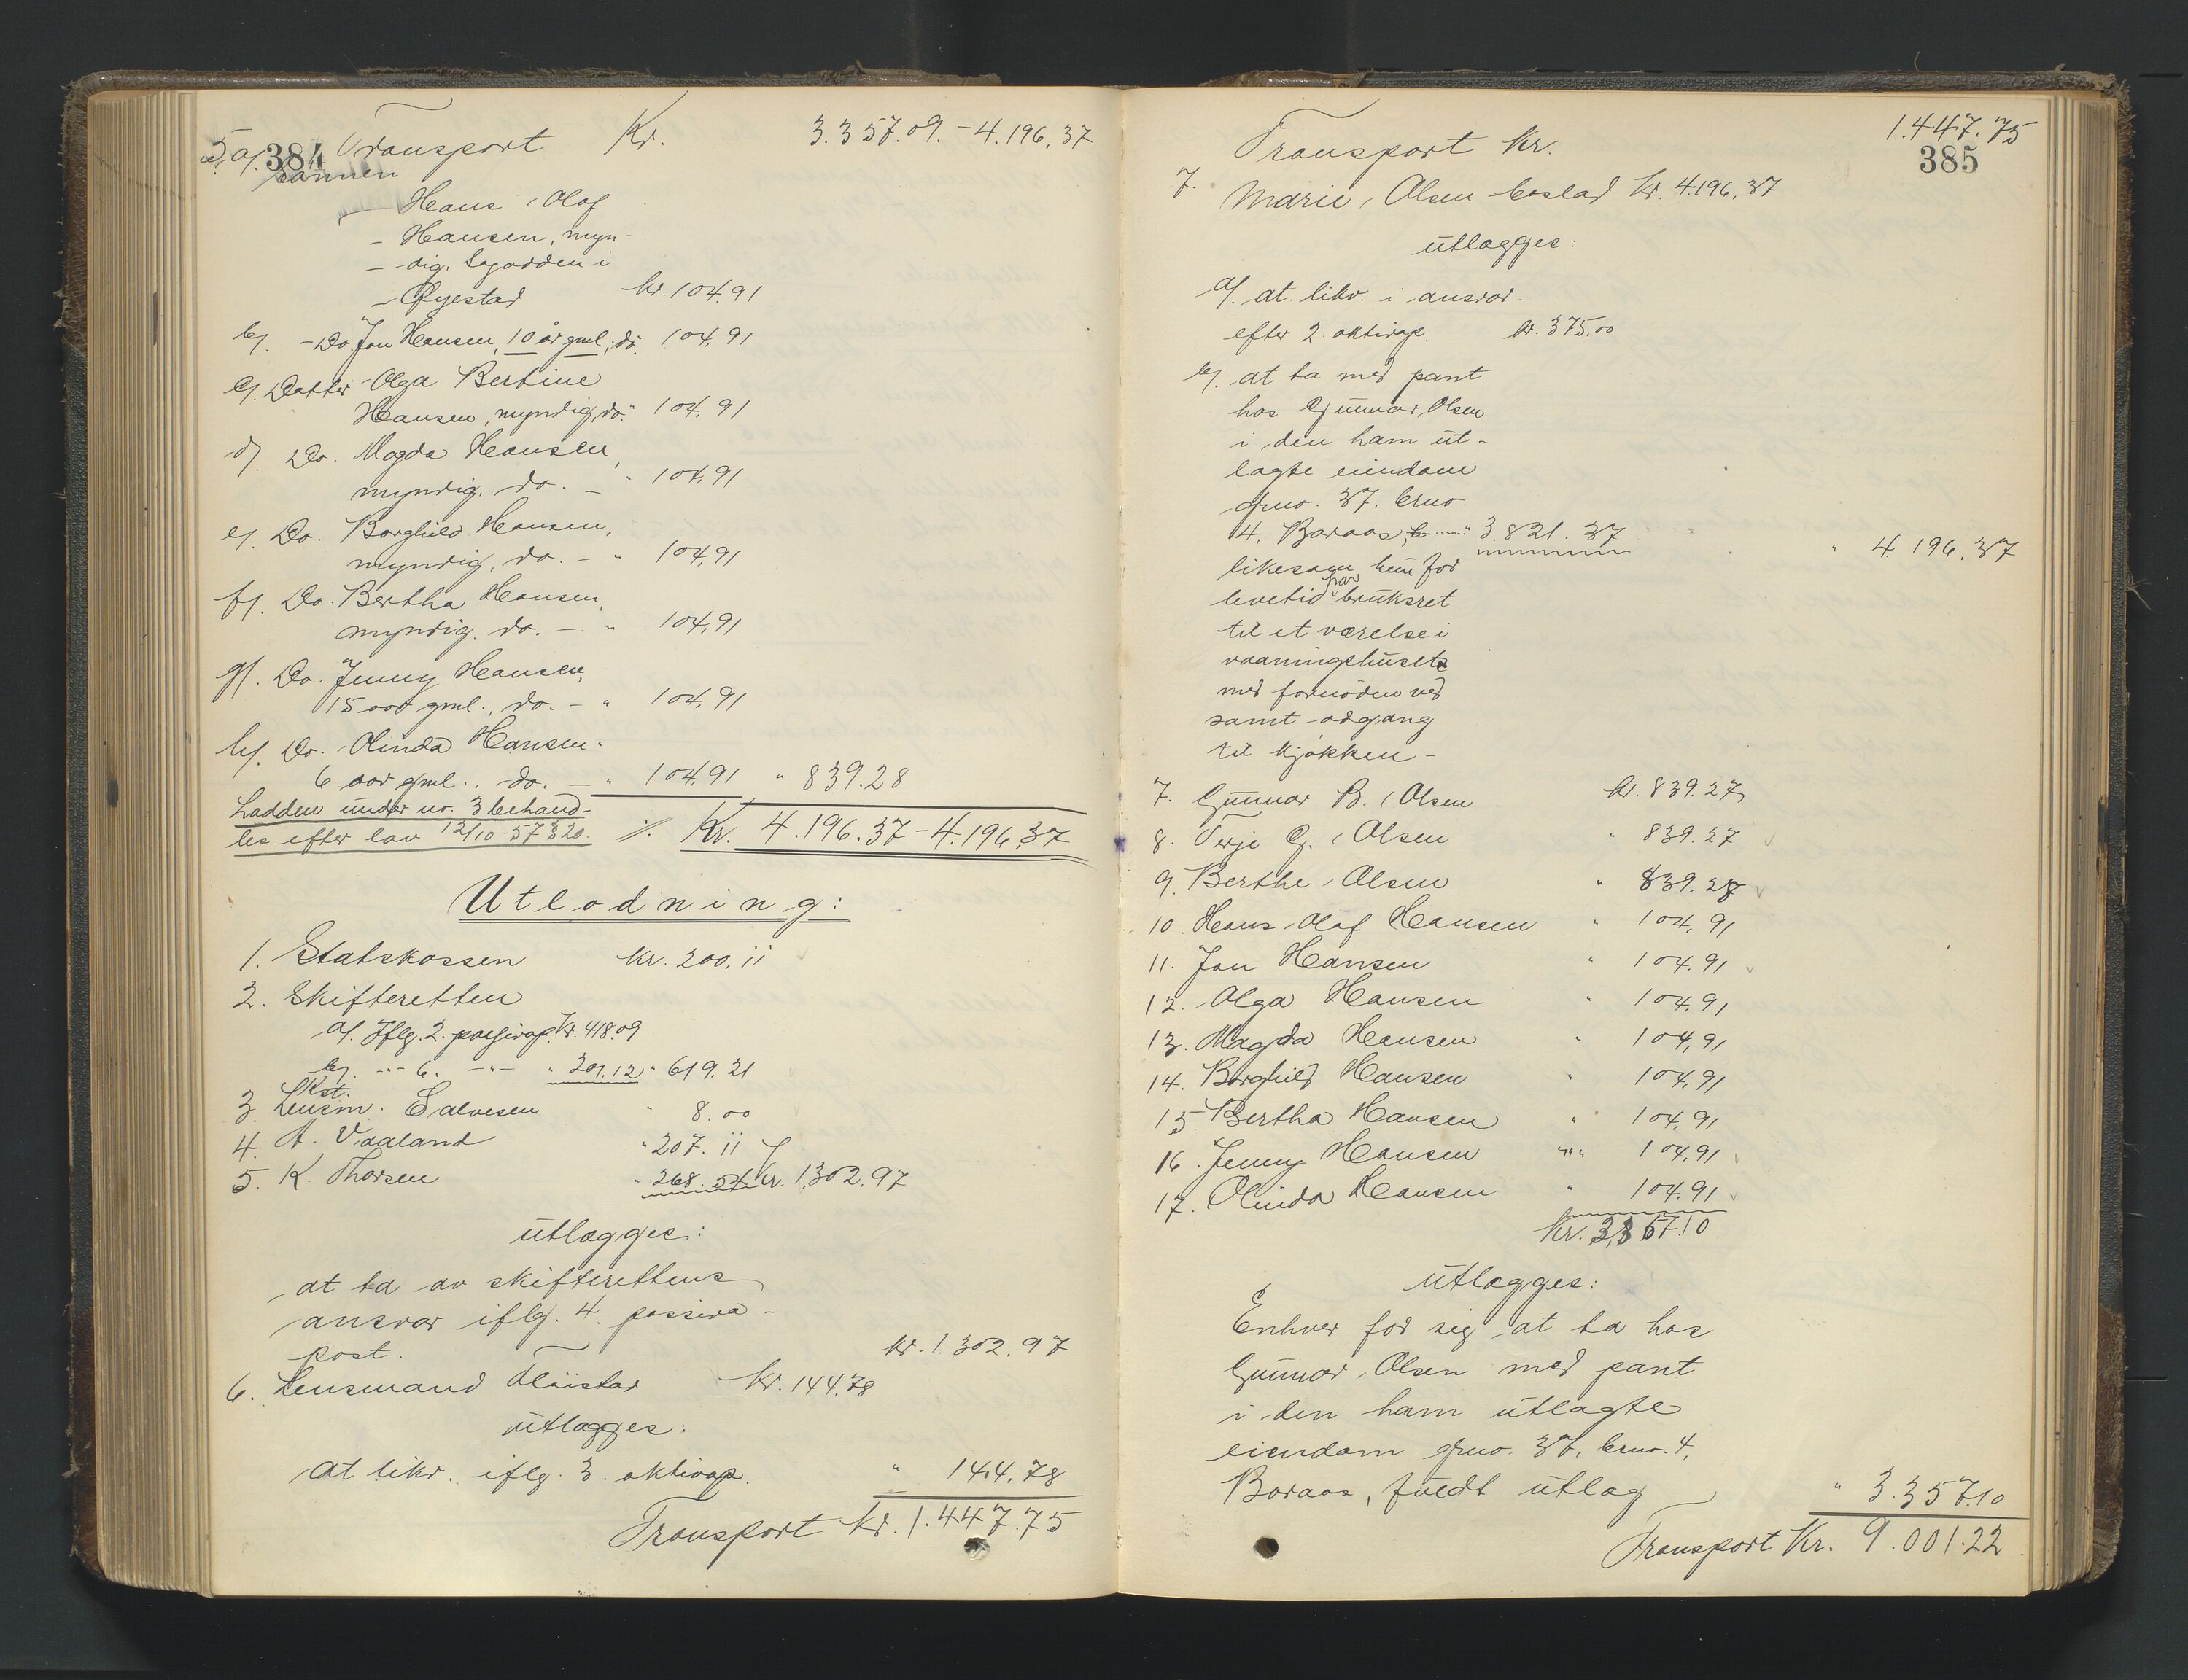 384
Transport Kr. 3.357.09. - 4.196,37
5, a/. Sønnen
Hans Olaf
- Hansen, myn-
- dig. Løgodden i
- Øyestad kr. 104.91
b/. - Do. Jon Hansen, 10 år gml., do. 104,91
c/. Datter Olga Bertine
Hansen, myndig, do. " 104,91
d/. Do. Magda Hansen,
myndig. do. - " 104,91
e/. Do. Borghild Hansen,
myndig, do. - " 104,91
f/. Do. Bertha Hansen,
myndig. do. - " 104,91
g/. Do. Jenny Hansen,
15 aar gml., do. - " 104,91
h/. Do. Olinda Hansen.
6 aar gml., do. - " 104,91 " 839.28
Lodden under no. 3 behand-
les efter lov 12/10-57 § 20. % Kr. 4.196.37 - 4.196.37
Utlodning:
1. Statskassen kr. 200, 11
2. Skifteretten
a/. Iflg. 2. passivap. kr. 418.09
b/. -"- 6. -"- " 201.12 " 619.21
Kst.
3. Lensm. Salvesen " 8.00
4. A. Vaaland " 207. 11
5. K. Thorsen " 268.54 kr. 1,302.97
utlægges:
at ta av skifterettens
ansvar iflg. 4. passiva-
post. kr. 1.302.97
6. Lensmand Fløistad kr. 144.78
utlægges:
at likv. iflg. 3. aktivap. " 144.78
Transport kr. 1.447.75
385
Transport kr. 1.447.75
7. Marie Olsen boslod kr. 4.196.37
utlægges:
a/. at likv. i ansvar.
efter 2. aktivap. kr. 375.00
b/. at ta med pant
hos Gunnar Olsen
i den ham ut-
lagte eiendom
gno. 37. brno.
4, Boraas, " 3.821.37 " 4.196.37
likesom hun for
levetid har bruksret
til et værelse i
vaaningshuset
med fornøden ved
samt adgang
til kjøkken -
7. Gunnar B. Olsen kr. 839.27
8. Terje G. Olsen " 839.27
9. Berthe Olsen " 839.28
10. Hans Olaf Hansen " 104,91
11. Jon Hansen " 104.91
12. Olga Hansen " 104,91
13. Magda Hansen " 104,91
14. Borghild Hansen " 104,91
15. Bertha Hansen " 104,91
16. Jenny Hansen " 104,91
17. Olinda Hansen " 104.91
Kr. 3,357.10
utlægges:
Enhver for sig at ta hos
Gunnar Olsen med pant
i den ham utlagte
eiendom gno. 37, brno. 4,
Boraas, fuldt utlag " 3.357.10
Transport Kr. 9.001.22